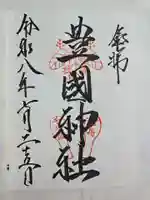 奉拝
豊國神社
令和八年二月二十五日